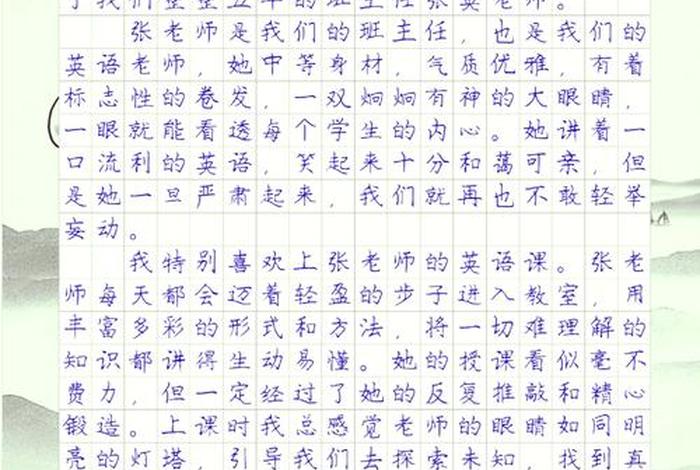 了我们整整五年的班主任张英老师。
张老师是我们的班主任，也是我们的
英语老师，她中等身材，气质优雅，有着
标志性的卷发，一双炯炯有神的大眼睛，
一眼就能看透每个学生的内心。她讲着一
口流利的英语，笑起来十分和蔼可亲，但
是她一旦严肃起来，我们就再也不敢轻举
妄动。
我特别喜欢上张老师的英语课。张老
师每天都会迈着轻盈的步子进入教室，用
丰富多彩的形式和方法，将一切难理解的
知识都讲得生动易懂。她的授课看似毫不
费力，但一定经过了她的反复推敲和精心
锻造。上课时我总感觉老师的眼睛如同明
亮的灯塔，引导我们去探索未知，找到真